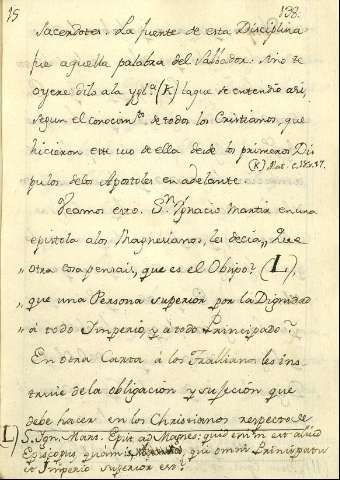 15
138.
Sacerdotes. La fuente de esta Disciplina
fue aquella palabra del Salbador. Sino te
oyere dilo ala ygl.ª (K) la que se entendio asi,
segun el conocim.to de todos los Cristianos, que
hicieron este uso de ella desde los primeros Dis
(K) Mat. c. 18. v. 17.
pulos delos Apostoles en adelante.
Veamos esto. Sn. Ygnacio Martir en una
epistola alos Magnesianos, les decia, Que
" otra cosa pensais, que es el Obispo? (L)
" que una Persona superior por la Dignidad
" á todo Imperio, y á todo Principado?
En otra Carta á los Trallianos les ins
truie de la obligacion y sujecion que
debe hacer en los Christianos respecto de
L) S. Ign. Mart. Epist. ad Magnes: quid enim est aliud
Episcopus quam is, qui omni Principatu
et Imperio superior est?